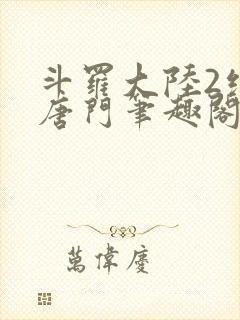 斗羅大陸2
唐門筆趣閣
萬偉慶